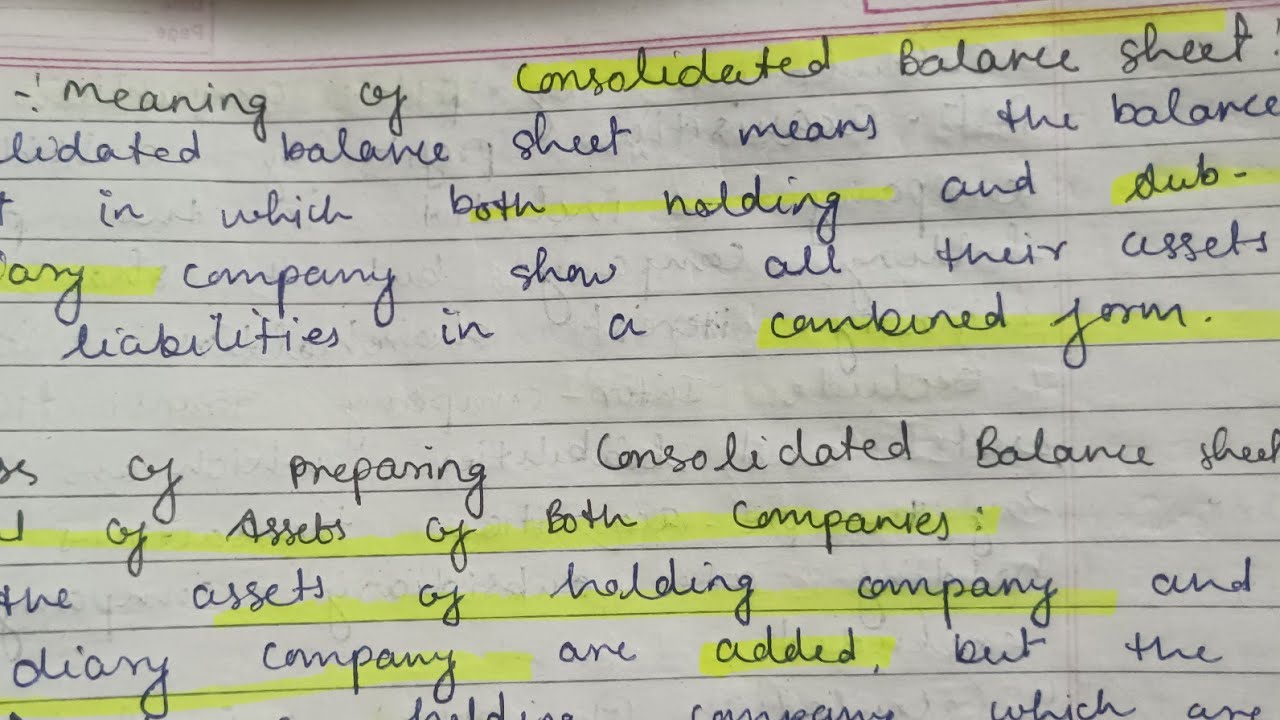 -: Meaning of Consolidated Balance sheet:
lidated balance sheet means the balance
t in which both holding and sub-
iary company show all their assets
liabilities in a combined form.
of preparing Consolidated Balance sheet
of Assets of Both Companies:
the assets of holding company and
diary company are added, but the
holding company which are